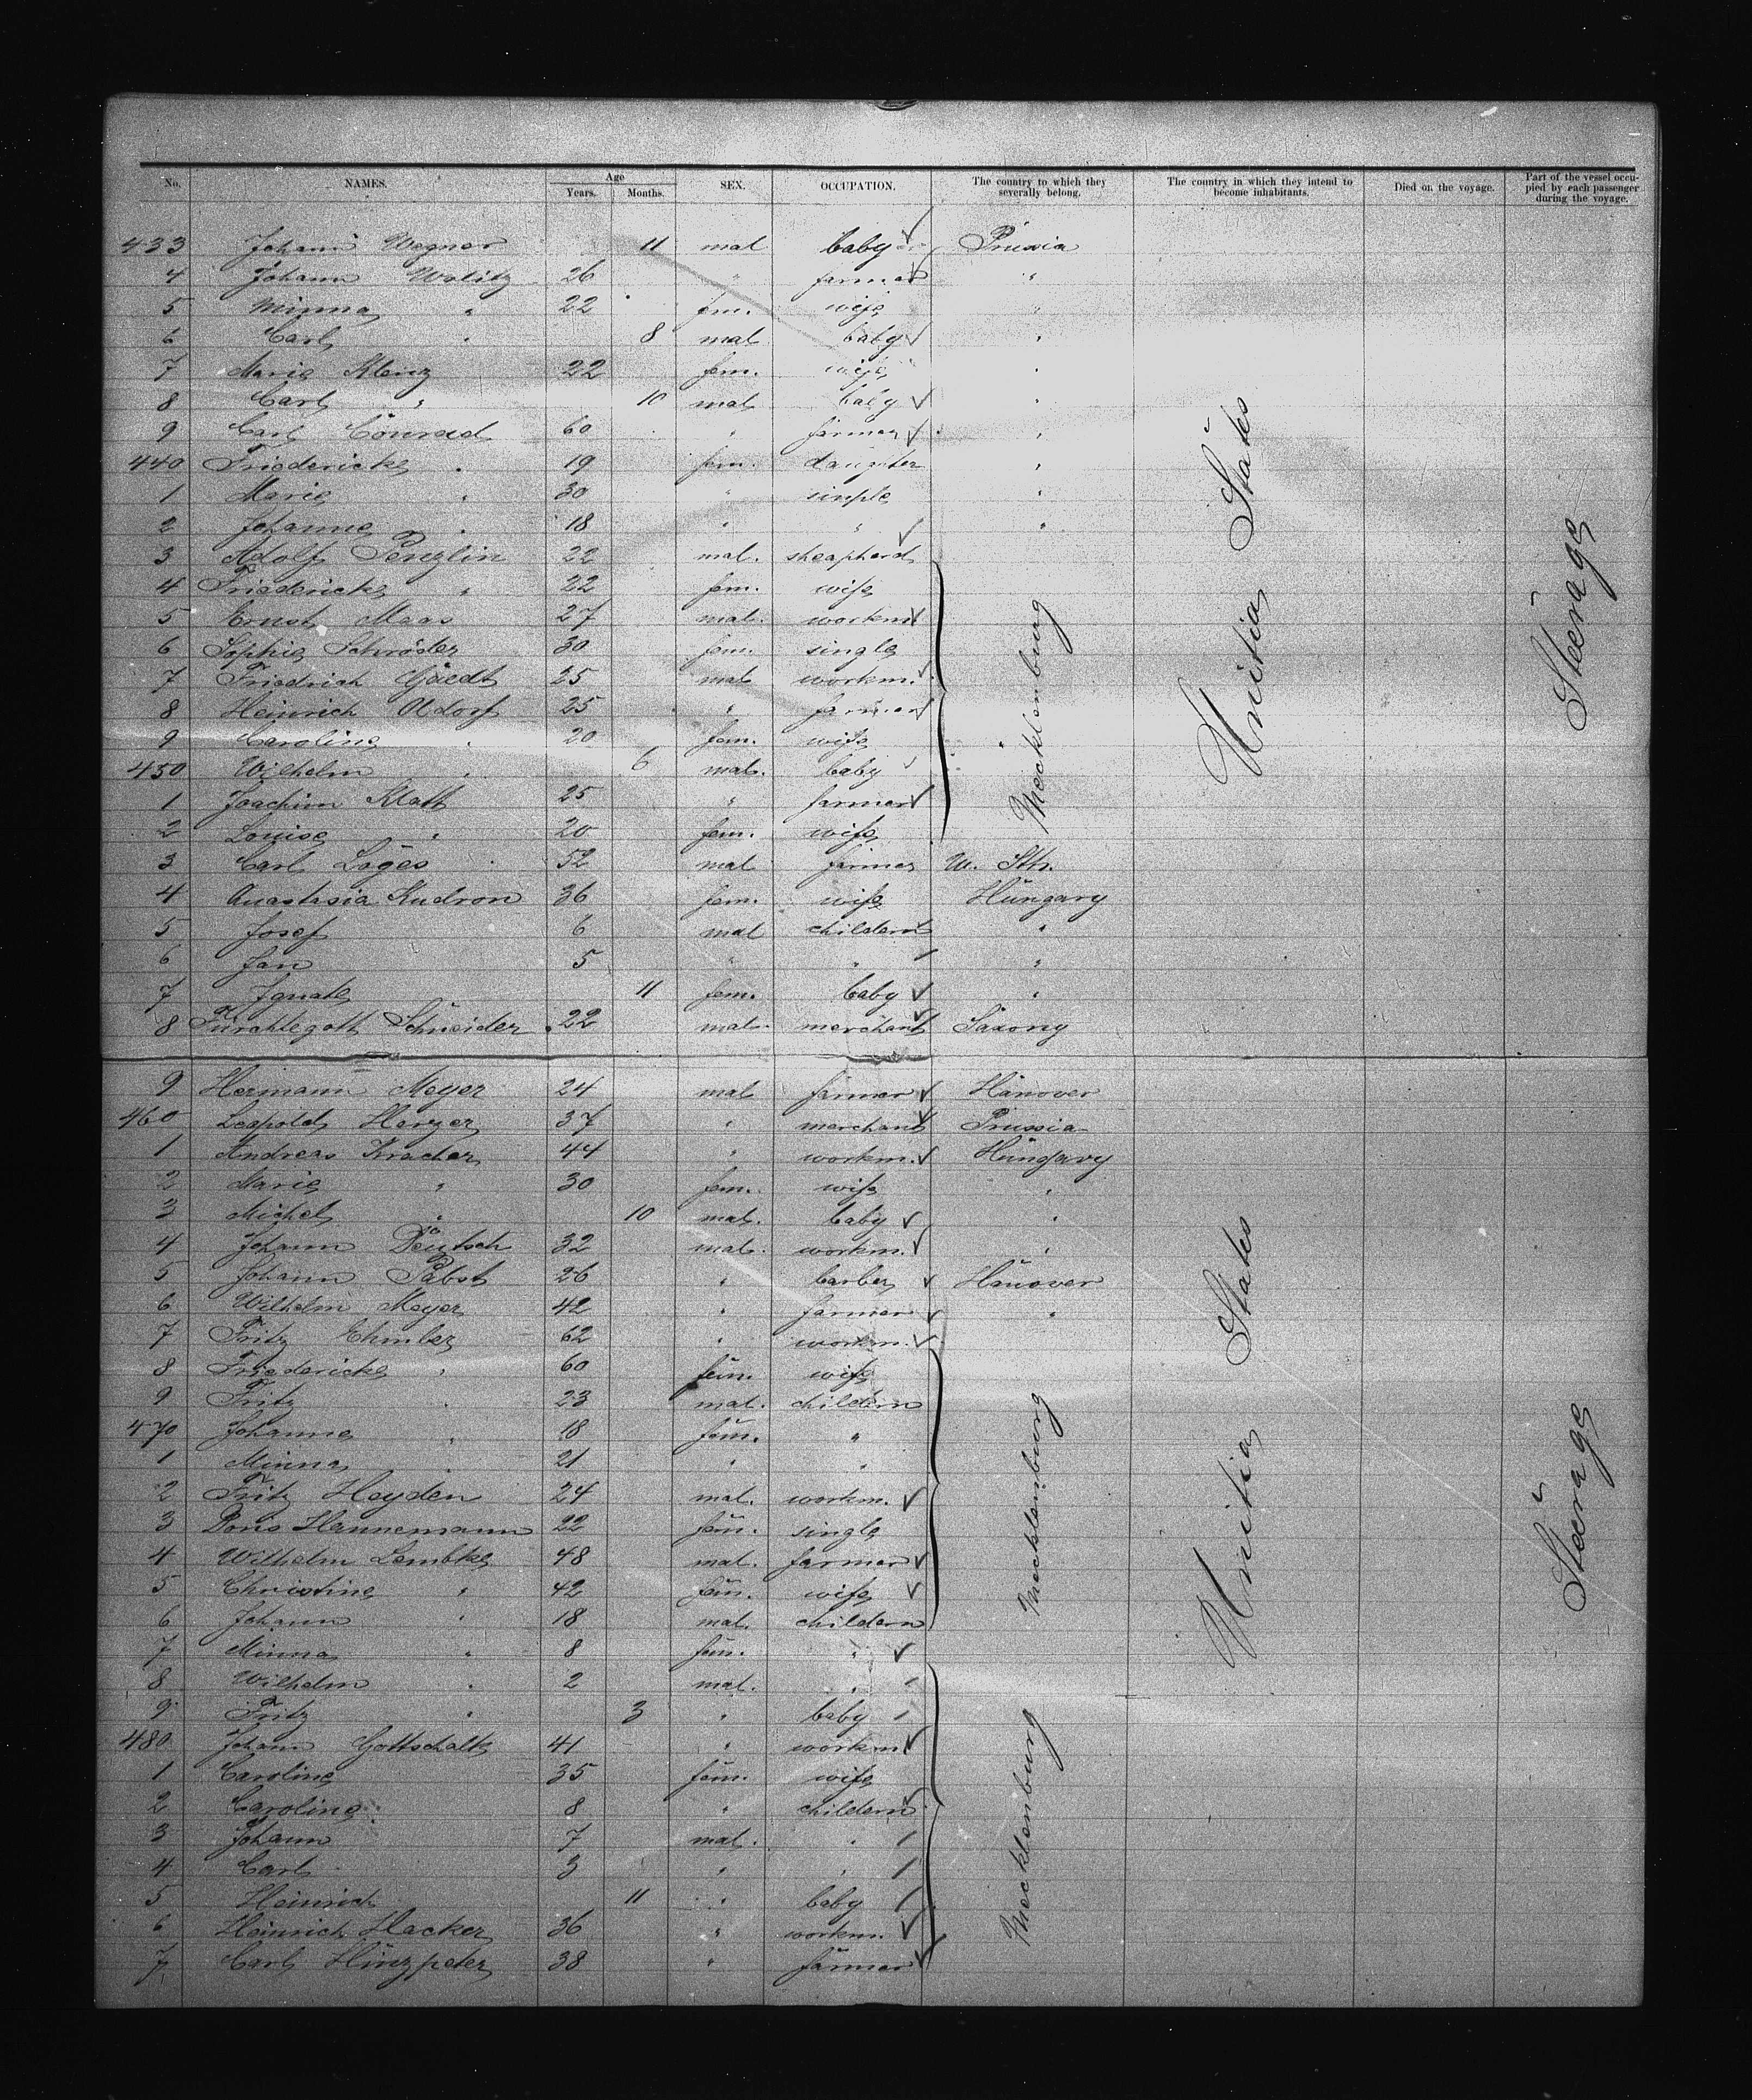 No. NAMES. Age Years. Months. SEX. OCCUPATION. The country to which they severally belong. The country in which they intend to become inhabitants. Died on the voyage. Part of the vessel occupied by each passenger during the voyage.
433 Johann Wegner 11 mal baby Prussia
4 Johann Walitz 26 " farmer "
5 Minna " 22 fem. wife "
6 Carl " 8 mal baby "
7 Marie Klenz 22 fem. wife "
8 Carl " 10 mal baby "
9 Carl Conrad 60 " farmer "
440 Friedericke " 19 fem. daughter "
1 Marie " 30 " single "
2 Johanna " 18 " " "
3 Adolf Penzlin 22 mal. sheapherd
4 Friedericke " 22 fem. wife
5 Ernst Maas 27 mal. workm
6 Sophie Schröder 30 fem. single
7 Friedrich Gäedt 25 mal workm.
8 Heinrich Oldorf 25 " farmer
9 Caroline " 20 fem. wife
450 Wilhelm " 6 mal. baby
1 Joachim Klatt 25 " farmer
2 Louise " 20 fem. wife
Mecklenburg
3 Carl Loges 52 mal farmer U. Sth.
4 Anastasia Kudron 36 fem. wife Hungary
5 Josef 6 mal childern "
6 Jan 5 " " "
7 Ignate 11 fem. baby "
8 Fürchtegott Schneider 22 mal. merchant Saxony
United States
Steerage
9 Hermann Meyer 24 mal farmer Hanover
460 Leopold Herzer 37 " merchant Prussia
1 Andreas Kracher 44 " workm. Hungary
2 Marie " 30 fem. wife "
3 Michel " 10 mal. baby "
4 Johann Deutsch 32 mal. workm. "
5 Johann Pabst 26 " barber Hanover
6 Wilhelm Meyer 42 " farmer "
7 Fritz 62 " workm.
8 Friedericke " 60 fem. wife
9 Fritz " 23 mal. childern
470 Johanna " 18 fem. "
1 Minna " 21 " "
2 Fritz Heyden 24 mal. workm.
3 Doris Hannemann 22 fem. single
4 Wilhelm Lembke 48 mal. farmer
5 Christine " 42 fem. wife
6 Johann " 18 mal. childern
Mecklenburg
7 Minna " 8 fem. "
8 Wilhelm " 2 mal. "
9 Fritz " 3 " baby
480 Johann Gottschalk 41 " workm
1 Caroline 35 fem. wife
2 Caroline 8 " childern
3 Johann 7 mal. "
4 Carl 3 " "
5 Heinrich 11 " baby
6 Heinrich Hacker 36 " workm.
7 Carl Hinzpeter 38 " farmer
Mecklenburg
United States
Steerage